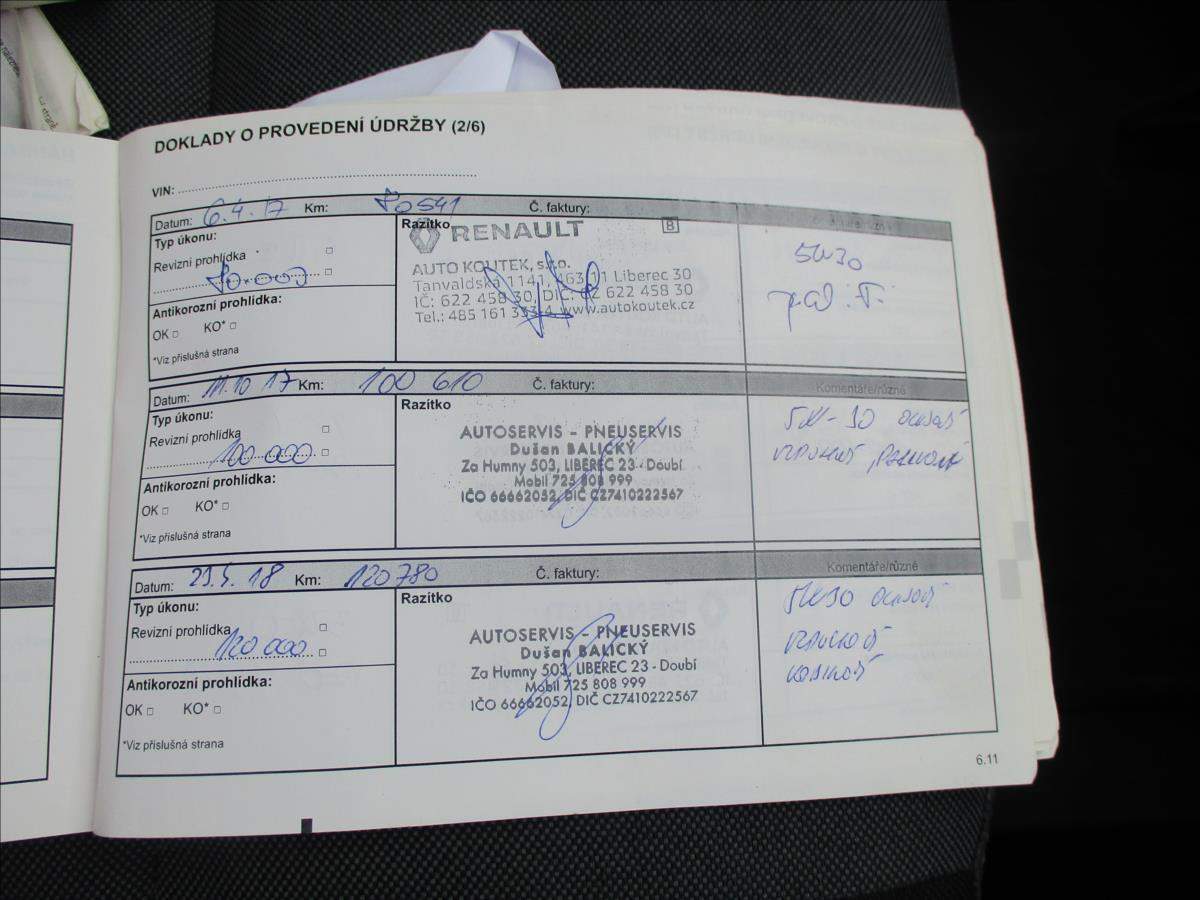 DOKLADY O PROVEDENÍ ÚDRŽBY (2/6)
VIN:
Datum: 6.4.17 Km: 80541 Č. faktury:
Typ úkonu:
Revizní prohlídka
Antikorozní prohlídka:
OK KO*
*Viz příslušná strana
Razítko
RENAULT
AUTO KOUTEK, s.r.o.
Tanvaldská 1141, 463 11 Liberec 30
IČ: 622 458 30, DIČ: CZ 622 458 30
Tel.: 485 161 333-4, www.autokoutek.cz
5W30
Datum: 11.10 17 Km: 100 610 Č. faktury:
Komentáře/různé
Typ úkonu:
Revizní prohlídka
100.000
Antikorozní prohlídka:
OK KO*
*Viz příslušná strana
Razítko
AUTOSERVIS - PNEUSERVIS
Dušan BALICKÝ
Za Humny 503, LIBEREC 23 - Doubí
Mobil 725 808 999
IČO 66662052, DIČ CZ7410222567
5W-30
Datum: 29.5.18 Km: 120780 Č. faktury:
Komentáře/různé
Typ úkonu:
Revizní prohlídka
120.000
Antikorozní prohlídka:
OK KO*
*Viz příslušná strana
Razítko
AUTOSERVIS - PNEUSERVIS
Dušan BALICKÝ
Za Humny 503, LIBEREC 23 - Doubí
Mobil 725 808 999
IČO 66662052, DIČ CZ7410222567
5W30
6.11